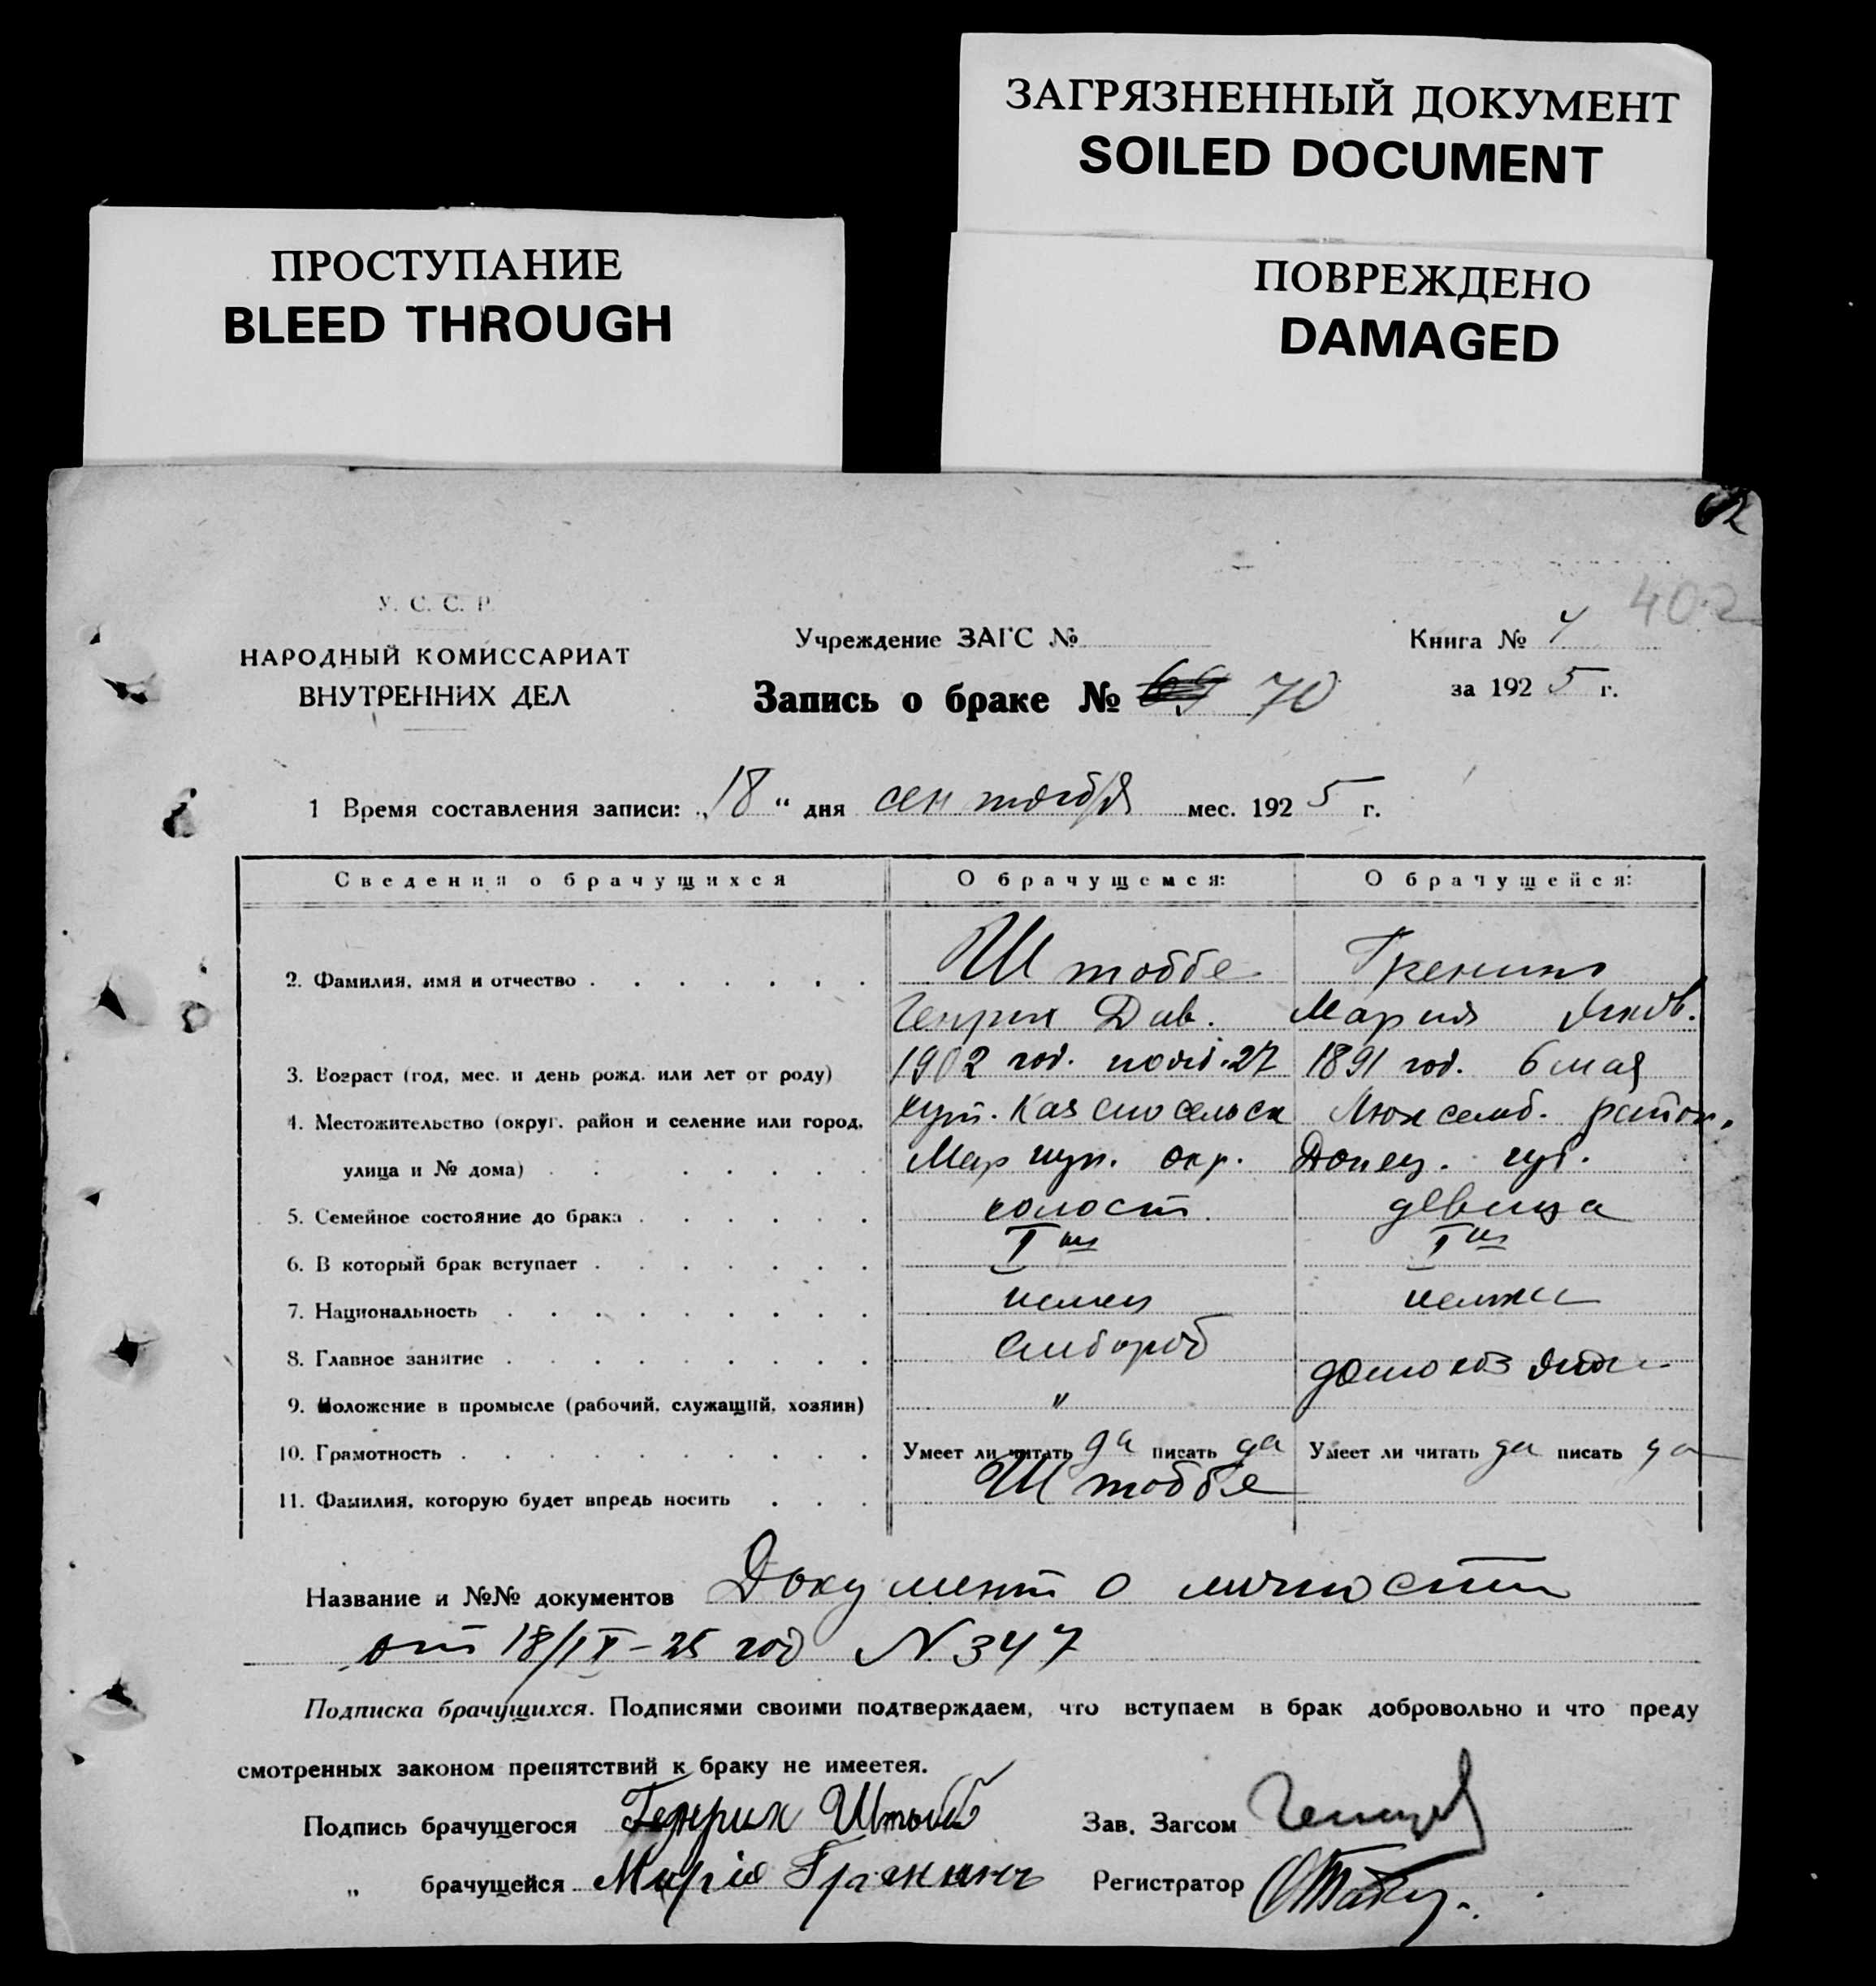 ЗАГРЯЗНЕННЫЙ ДОКУМЕНТ
SOILED DOCUMENT
ПРОСТУПАНИЕ
BLEED THROUGH
ПОВРЕЖДЕНО
DAMAGED
402
У. С. С. Р.
НАРОДНЫЙ КОМИССАРИАТ
ВНУТРЕННИХ ДЕЛ
Учреждение ЗАГС №
Запись о браке № 69 70
Книга № 4
за 1925 г.
1 Время составления записи: „18“ дня сентября мес. 1925 г.
Сведения о брачущихся О брачущемся: О брачущейся:
2. Фамилия, имя и отчество Штоббе Гренинг
Генрих Дав. Мария Яков.
3. Возраст (год, мес. и день рожд. или лет от роду) 1902 год. 27 1891 год. 6 мая
4. Местожительство (округ, район и селение или город, Люксемб. район.
улица и № дома) Мариуп. окр. Донец. губ.
5. Семейное состояние до брака холост девица
6. В который брак вступает I й I й
7. Национальность немец немка
8. Главное занятие хлебороб
9. Положение в промысле (рабочий, служащий, хозяин) "
10. Грамотность Умеет ли читать да писать да Умеет ли читать да писать да
11. Фамилия, которую будет впредь носить Штоббе
Название и №№ документов Документ о личности
от 18/IX–25 год N 347
Подписка брачущихся. Подписями своими подтверждаем, что вступаем в брак добровольно и что преду
смотренных законом препятствий к браку не имеетея.
Подпись брачущегося Генрих Штобе Зав. Загсом
„ брачущейся Марія Гренингъ Регистратор